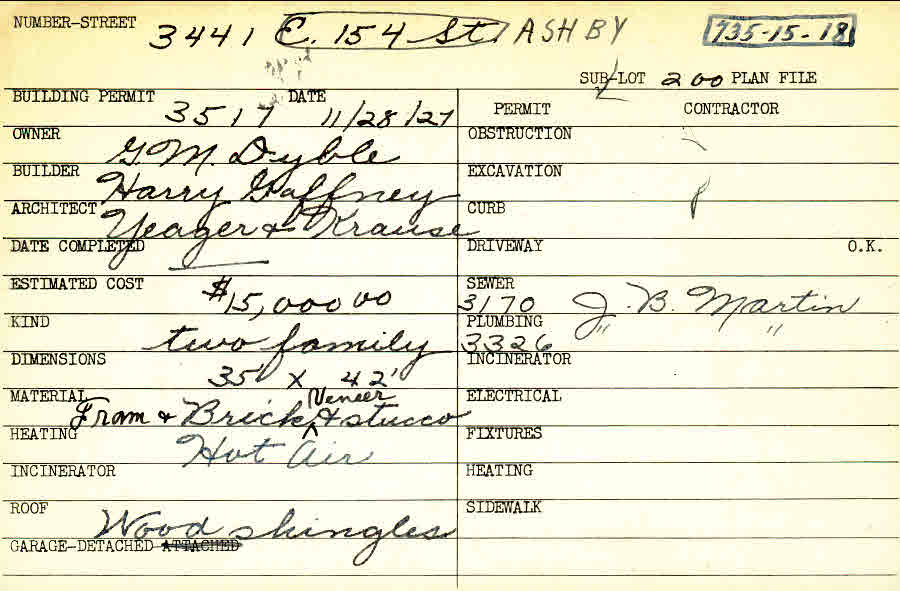 NUMBER-STREET 3441 E. 154 St. ASHBY 735-15-18
SUB-LOT 200 PLAN FILE
BUILDING PERMIT 3517 DATE 11/28/27
PERMIT CONTRACTOR
OWNER G.M. Dyble
OBSTRUCTION
BUILDER Harry Gaffney
EXCAVATION
ARCHITECT Yeager & Krause
CURB
DATE COMPLETED
DRIVEWAY O.K.
ESTIMATED COST $15,000 00
SEWER 3170 J. B. Martin
KIND two family
PLUMBING 3326 " "
DIMENSIONS 35' x 42'
INCINERATOR
MATERIAL Fram & Brick Veneer & stucco
ELECTRICAL
HEATING Hot Air
FIXTURES
INCINERATOR
HEATING
ROOF Wood shingles
SIDEWALK
GARAGE-DETACHED ATTACHED